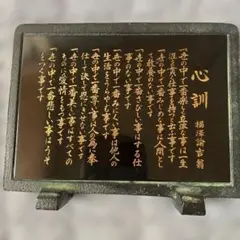 心訓
福澤諭吉翁
一、世の中で一番楽しく立派な事は一生
涯を貫く仕事を持つと云う事です
一、世の中で一番みじめな事は人間とし
て教養のない事です
一、世の中で一番さびしい事はする仕
事のない事です
一、世の中で一番みにくい事は他人の
生活をうらやむ事です
一、世の中で一番尊い事は人の為に奉
仕して決して恩にきせない事です
一、世の中で一番美しい事はすべての
ものに愛情をもつ事です
一、世の中で一番悲しい事はうそ
をつく事です